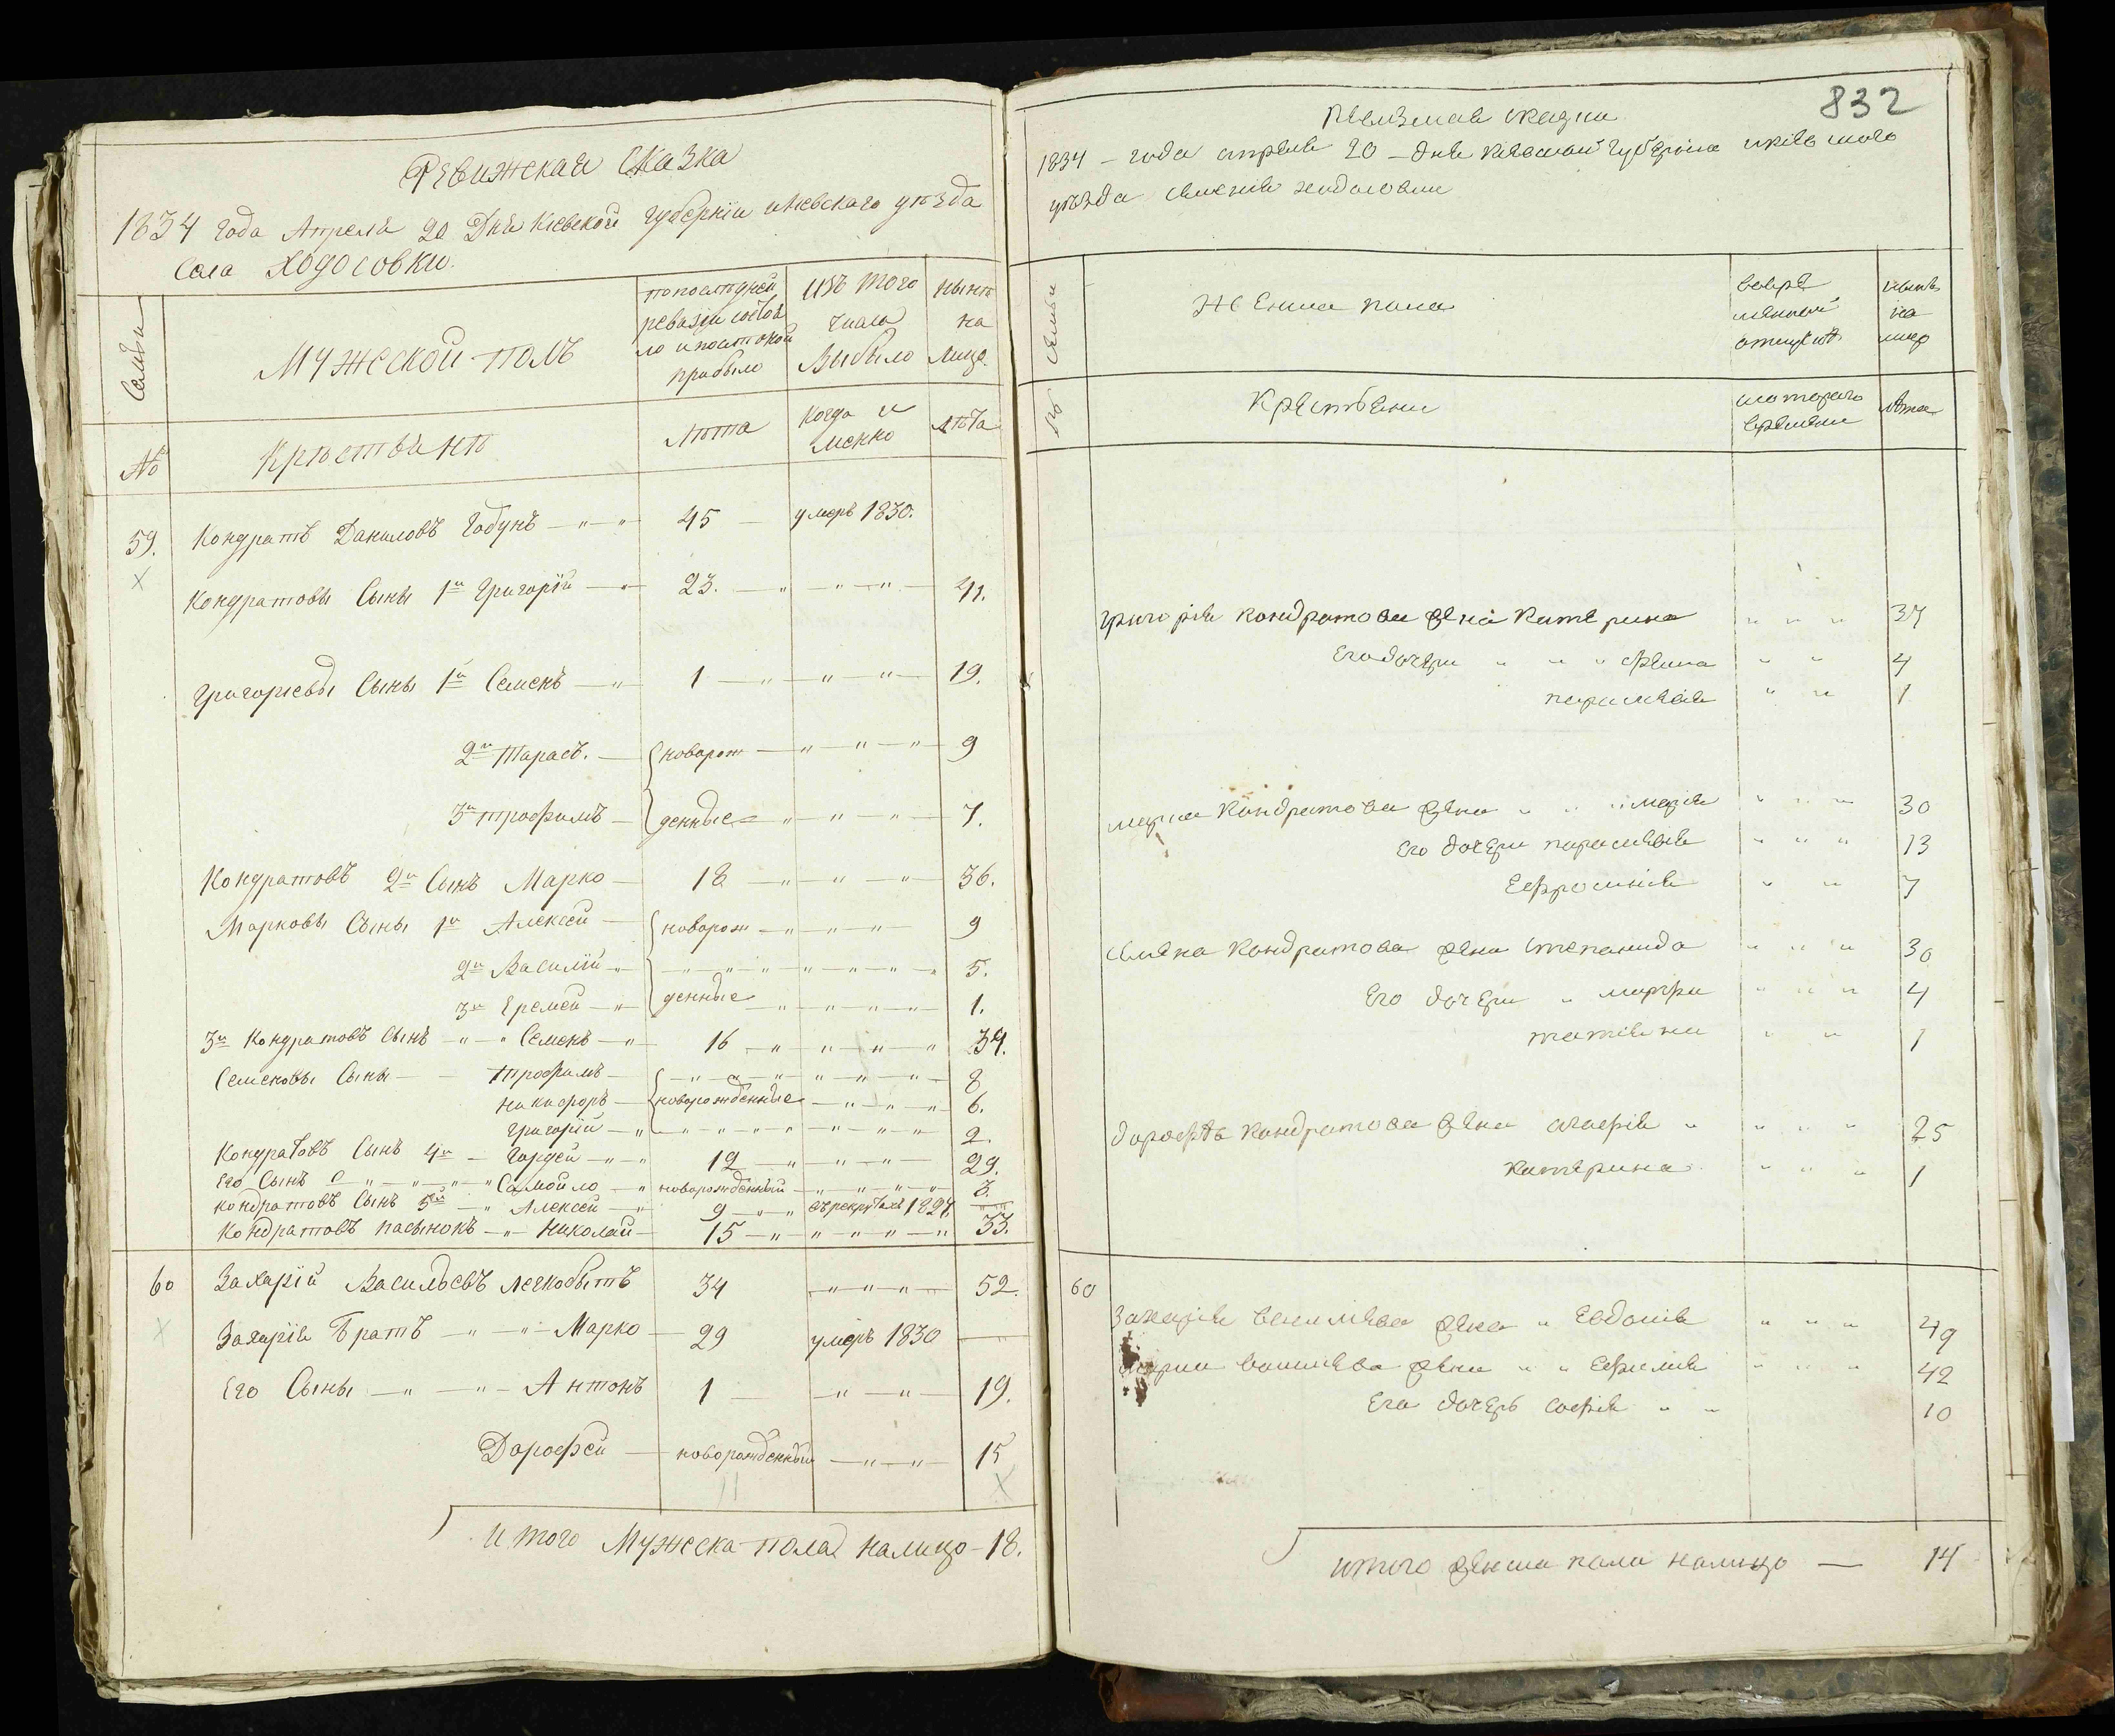 Ревижская Сказка
1834 года Апреля 20 Дня Кіевской губерніи и Кевскаго уѣзда
Села Ходосовки.
Семьи
Мужеской полъ
по последней
ревазіи состоя
ло и после оной
прибыло
Изъ того
числа
Выбыло
нынѣ
на
лицо.
№
Крѣстьянѣ
Лѣта
Когда и
менно
Лѣта
59. Кондратъ Даниловъ Годунъ 45 умеръ 1830.
Кондратовы Сыны 1й Григорій 23. 41.
Григорьевы Сыны 1й Семенъ 1 19.
2й Тарасъ. новорож 9
3й Трофимъ денные 7.
Кондратовъ 2й Сынъ Марко 18 36.
Марковы Сыны 1й Алексей новорож 9
2й Василій 5.
3й Еремей денные 1.
3й Кондратовъ Сынъ Семенъ 16 34.
Семеновы Сыны Трофимъ 8
Никифоръ новорожденные 6.
Григорій 2.
Кондратовъ Сынъ 4й Гордей 12 29.
Его Сынъ Самойло новорожденный 3.
Кондратовъ Сынъ 5й Алексей 9 въ рекрутахъ 1827.
Кондратовъ пасынокъ Николай 15 33.
60 Захарій Васильевъ Легкобытъ 34 52.
Захарія Братъ Марко 29 умеръ 1830
Его Сыны Антонъ 1 19.
Дорофей новорожденный 15
Итого Мужеска пола налицо 18.
832
1834 года апреля 20 дня Кіевской Губерніи
уѣзда
Семьи
Женска пола
вовре
менной
отлучкѣ
нынѣ
на
лицо
№
Крестьяни
с котораго
времени
лѣта
Григорія Кондратова жена Катерина 37
Его дочери 4
параскевія 1
марка Кондратова жена марія 30
Его дочери параскевія 13
Ефросинія 7
Семена Кондратова жена Степанида 30
Его дочери марфа 4
татіяна 1
Кондратова жена агафія 25
Катерина 1
60
Захарія Василіева жена Евдокія 49
марка Василіева жена 42
Его дочерь софія 10
итого женска пола налицо 14